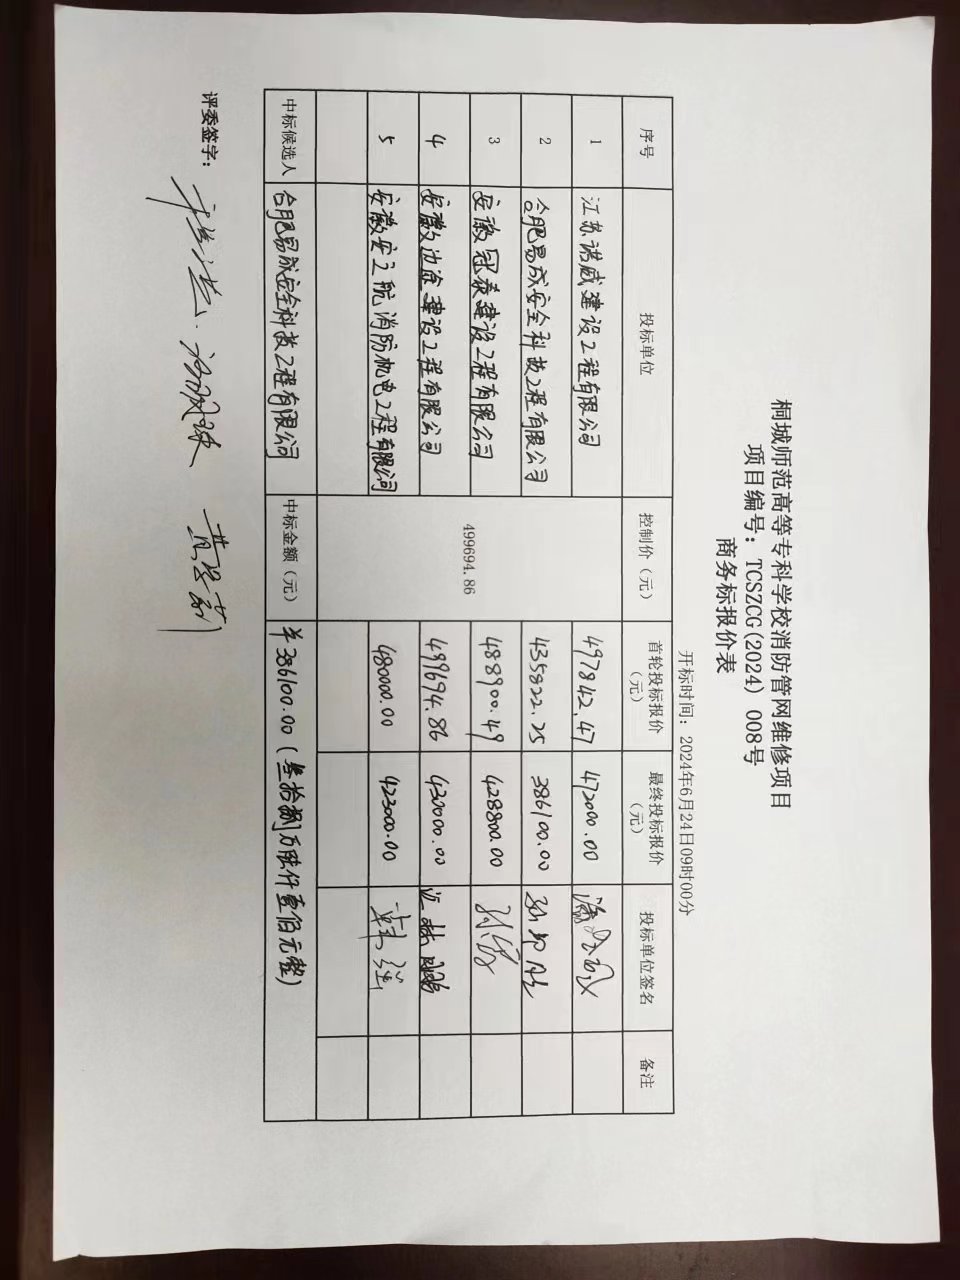 桐城师范高等专科学校消防管网维修项目
项目编号：TCSZCG(2024) 008号
商务标报价表
开标时间：2024年6月24日09时00分
序号 投标单位 控制价（元） 首轮投标报价（元） 最终投标报价（元） 投标单位签名 备注
1 江苏诺威建设工程有限公司 497842.47 472000.00
2 合肥易成安全科技工程有限公司 435822.25 386100.00
3 安徽冠泰建设工程有限公司 499694.86 488900.49 428800.00
4 安徽 建设工程有限公司 499694.86 430000.00
5 安徽安之航消防机电工程有限公司 480000.00 423000.00
中标候选人 合肥易成安全科技工程有限公司 中标金额（元） ￥386100.00（叁拾捌万陆仟壹佰元整）
评委签字：